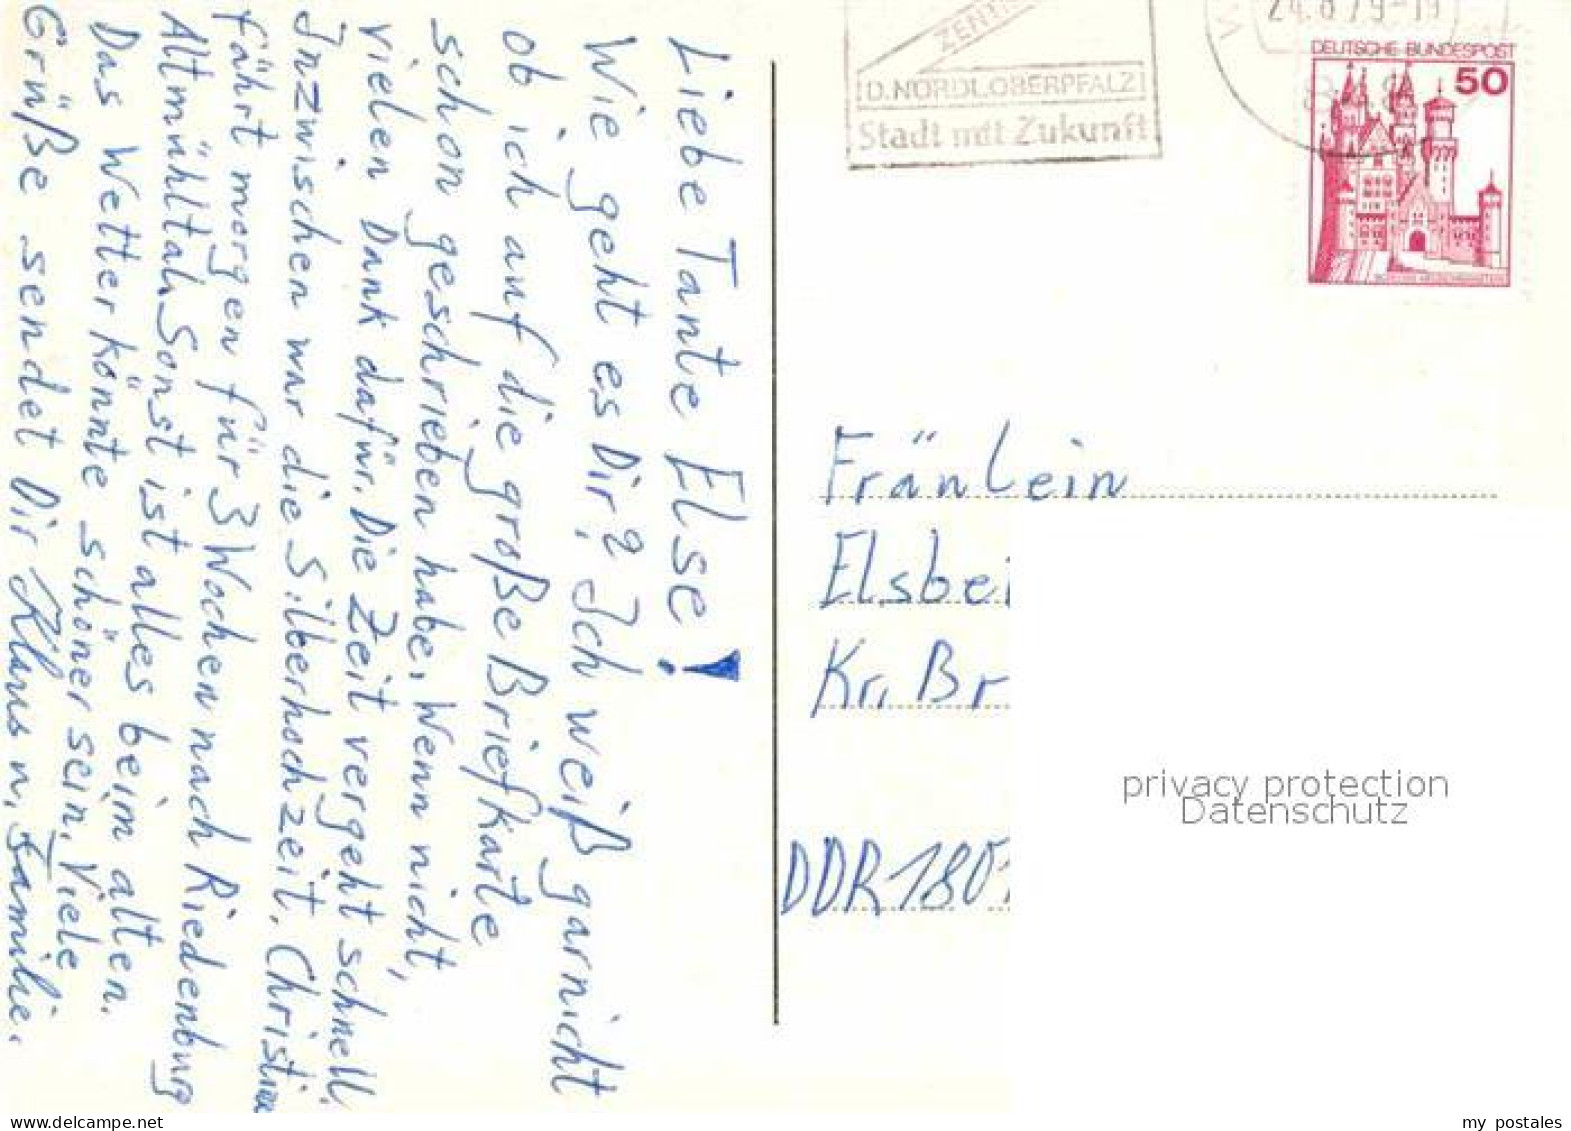 Liebe Tante Else!
Wie geht es Dir? Ich weiß garnicht
ob ich auf die große Briefkarte
schon geschrieben habe. Wenn nicht,
vielen Dank dafür. Die Zeit vergeht schnell.
Inzwischen war die Silberhochzeit. Christine
fährt morgen für 3 Wochen nach Riedenburg
Altmühltal. Sonst ist alles beim alten.
Das Wetter könnte schöner sein. Viele
Grüße sendet Dir Klaus u. Familie.
D. NÖRDL. OBERPFALZ
Stadt mit Zukunft
24.8.79-19
DEUTSCHE BUNDESPOST
50
Fräulein
Elsbe
Kr. Br
DDR 180
privacy protection
Datenschutz
delcampe.net
my_postales